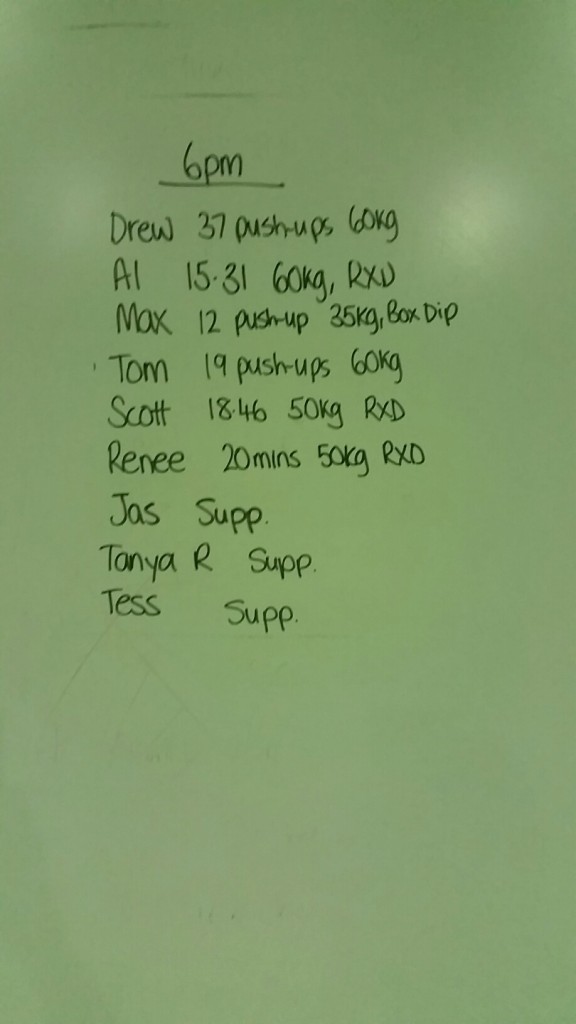 6pm
Drew 37 push-ups 60kg
Al 15.31 60kg, RXD
Max 12 push-up 35kg, Box Dip
Tom 19 push-ups 60kg
Scott 18.46 50kg RXD
Renee 20mins 50kg RXD
Jas Supp.
Tanya R Supp.
Tess Supp.